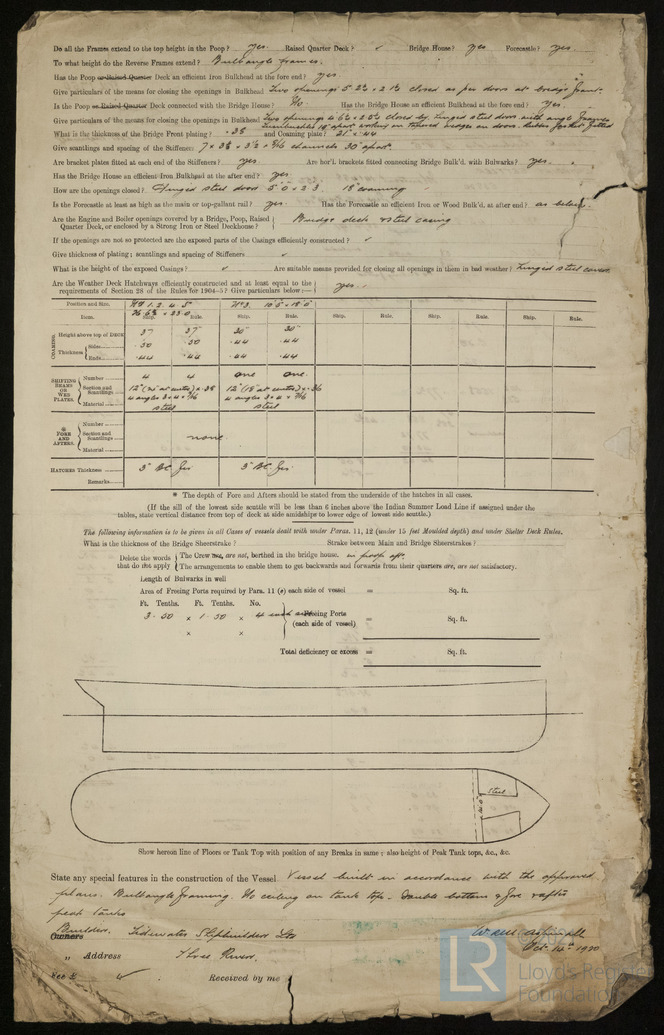 Do all the Frames extend to the top height in the Poop? yes. Raised Quarter Deck? ✓ Bridge House? yes Forecastle? yes
To what height do the Reverse Frames extend? Bulbangle frames.
Has the Poop or Raised Quarter Deck an efficient Iron Bulkhead at the fore end? yes.
Give particulars of the means for closing the openings in Bulkhead Two openings closed as per doors at bridge front
Is the Poop or Raised Quarter Deck connected with the Bridge House? No. Has the Bridge House an efficient Bulkhead at the fore end? Yes.
Give particulars of the means for closing the openings in Bulkhead Two openings closed by hinged steel doors with angle frames
What is the thickness of the Bridge Front plating? .38 and Coaming plate? 21" .44
Give scantlings and spacing of the Stiffeners channels 30" apart.
Are bracket plates fitted at each end of the Stiffeners? yes. Are hor'l. brackets fitted connecting Bridge Bulk'd. with Bulwarks? yes.
Has the Bridge House an efficient Iron Bulkhead at the after end? yes
How are the openings closed? Hinged steel doors 5'0 x 2'3 18" coaming
Is the Forecastle at least as high as the main or top-gallant rail? yes. Has the Forecastle an efficient Iron or Wood Bulk'd. at after end? as below.
Are the Engine and Boiler openings covered by a Bridge, Poop, Raised Quarter Deck, or enclosed by a Strong Iron or Steel Deckhouse? Bridge deck & steel casing
If the openings are not so protected are the exposed parts of the Casings efficiently constructed? ✓
Give thickness of plating; scantlings and spacing of Stiffeners ✓
What is the height of the exposed Casings? ✓ Are suitable means provided for closing all openings in them in bad weather? Hinged steel covers
Are the Weather Deck Hatchways efficiently constructed and at least equal to the requirements of Section 28 of the Rules for 1904-5? Give particulars below:— yes.
Position and Size. No 1. 2. 4. 5 No 3.
Item. Ship. Rule. Ship. Rule. Ship. Rule. Ship. Rule. Ship. Rule.
COAMING. Height above top of DECK 37 37 30 30
Thickness Sides .30 .30 .44 .44
Ends .44 .44 .44 .44
SHIFTING BEAMS OR WEB PLATES. Number 4 4 one one.
Section and Scantlings
Material steel steel
* FORE AND AFTERS. Number
Section and Scantlings none
Material
HATCHES Thickness 3" 3"
Remarks
* The depth of Fore and Afters should be stated from the underside of the hatches in all cases.
(If the sill of the lowest side scuttle will be less than 6 inches above the Indian Summer Load Line if assigned under the
tables, state vertical distance from top of deck at side amidships to lower edge of lowest side scuttle.)
The following information is to be given in all Cases of vessels dealt with under Paras. 11, 12 (under 15 feet Moulded depth) and under Shelter Deck Rules.
What is the thickness of the Bridge Sheerstrake? Strake between Main and Bridge Sheerstrakes?
Delete the words that do not apply The Crew are, are not, berthed in the bridge house. in poop aft.
The arrangements to enable them to get backwards and forwards from their quarters are, are not satisfactory.
Length of Bulwarks in well
Area of Freeing Ports required by Para. 11 (e) each side of vessel = Sq. ft.
Ft. Tenths. Ft. Tenths. No.
3. 50 × 1. 50 × 4 each Freeing Ports (each side of vessel) = Sq. ft.
× ×
Total deficiency or excess = Sq. ft.
Steel
Show hereon line of Floors or Tank Top with position of any Breaks in same; also height of Peak Tank tops, &c., &c.
State any special features in the construction of the Vessel. Vessel built in accordance with the approved
plans. Bulbangle framing. No ceiling on tank top. Double bottom & fore & after
peak tanks
Builders. Owners Tidewater Shipbuilders Ltd
„ Address Three Rivers.
Oct. 14th 1920
Fee £ ✓ Received by me
LR Lloyds Register Foundation